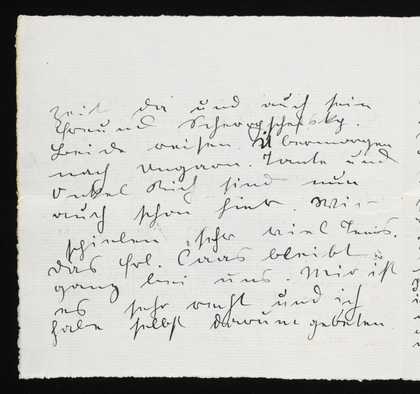 Zeit da und auch sein
Freund
Beide reisen Übermorgen
nach Ungarn. Tante und
Onkel Rich sind nun
auch schon hier. Wir
spielen sehr viel Tenis.
das Frl. Caas bleibt
ganz bei uns. Mir ist
es sehr recht und ich
habe selbst darum gebeten